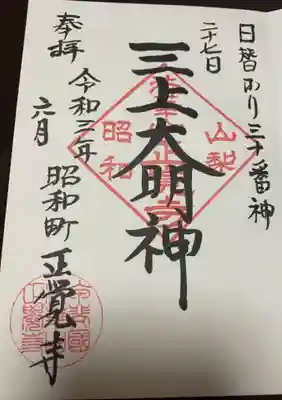 日替わり三十番神
二十七日
三上大明神
奉拝
令和三年
六月
昭和町 正覚寺
山梨
昭和